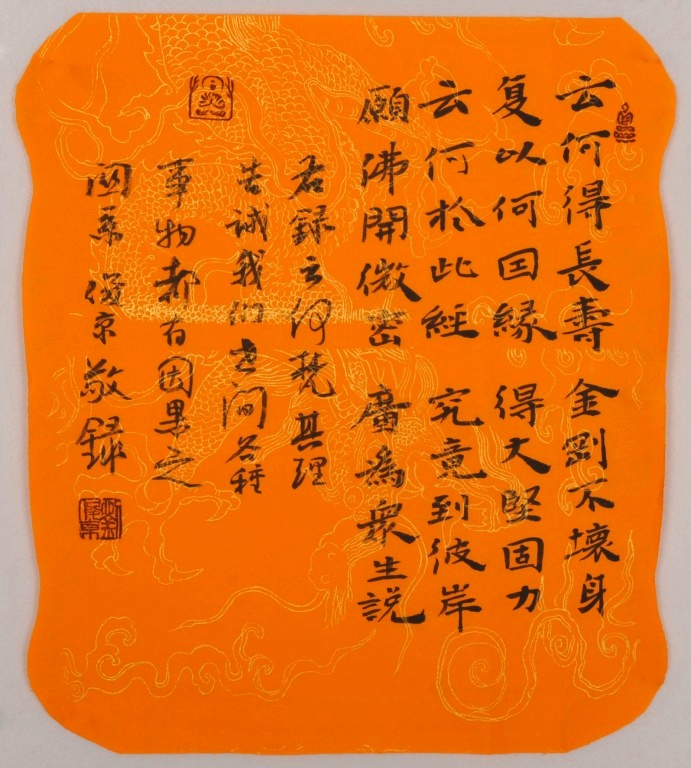 云何得長壽 金剛不壞身
复以何囙緣 得大堅固力
云何扵此經 究竟到彼岸
願佛開微密 廣為衆生説
右録云何梵其理
告诫我们世间各種
事物都有因果之
関系 俊京敬録